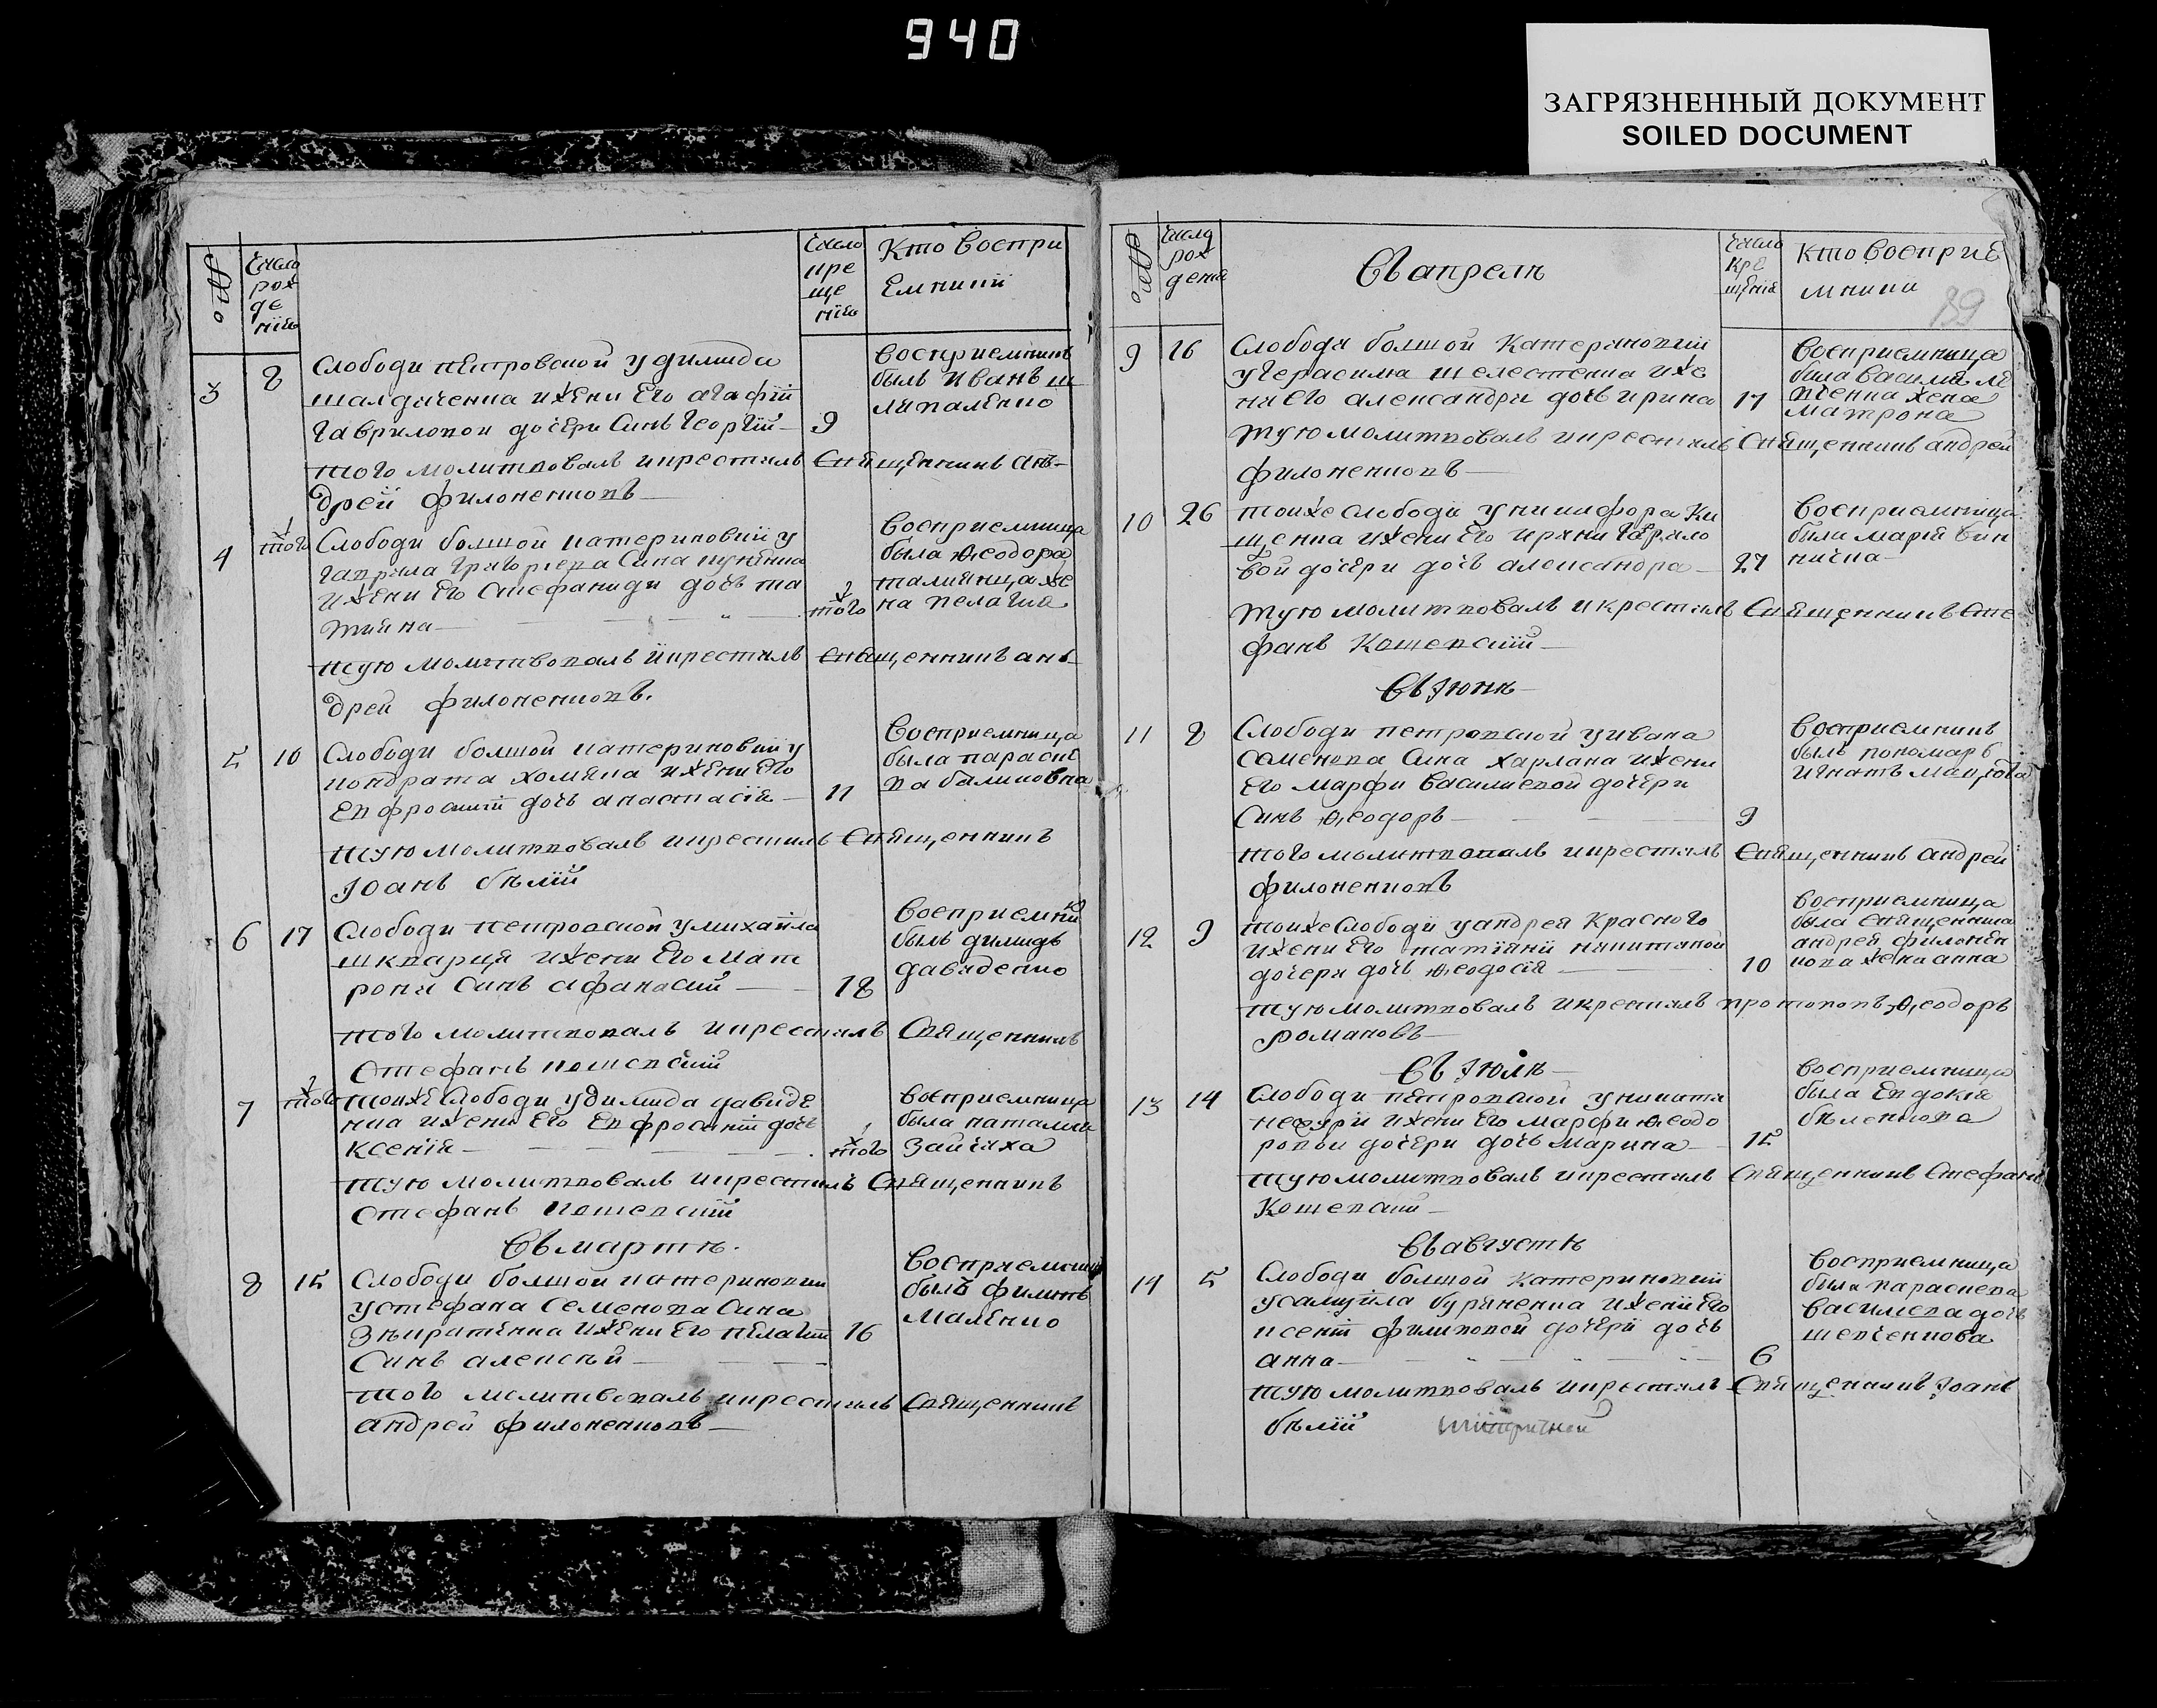 940
ЗАГРЯЗНЕННЫЙ ДОКУМЕНТ
SOILED DOCUMENT
Число рож де нію
Число кре ще нію
Кто Воспри
Емникі
3 8 Слободи петровской у димида
ихени Его агафіі
гавриловои дочери Синъ Георгій 9
Восприемникъ
былъ Иванъ
того молитвовалъ икрестилъ Священникъ Ань
дрей филоненковъ
4 тогож Слободи болшой катериновкіи у
гаврила григориева Сина
ихени Его Стефаниди дочъ та
тияна тогож
Восприемница
была Ѳеодора
на пелагия
тую молитвовалъ икрестилъ Священникъ ань
дрей филоненковъ.
5 10 Слободи болшой катериновкіи у
кондрата хомяка ихени Его
Евфросиніі дочъ анастасія 11
Восприемница
была параске
ва
тую молитвовалъ икрестилъ Священникъ
Іоанъ бѣлій
6 17 Слободи петровской у михайла
шкварця ихени Его Мат
рони Синъ афанасий 18
Восприемник
былъ димидъ
давиденко
того молитвовалъ икрестилъ Священникъ
Стефанъ кошевский
7 тогож тоиже Слободи у димида давиде
нка ихени Его Евфросиніі дочъ
ксенія тогож
Восприемница
была наталия
зайчиха
тую молитвовалъ икрестилъ Священникъ
Стефанъ кошевскій
Въ мартѣ.
8 15 Слободи болшой катериновкіи
у стефана Семенова Сина
ихени Его пелагиі 16
Синъ алексѣй
Восприемник
былъ филипъ
Маленко
того молитвовалъ икрестилъ Священникъ
андрей филоненковъ
Число рож дения
Въ апрелѣ
Число кре щения
Кто Восприе
мники
39
9 16 Слободи болшой Катериновкіи
у герасима шелестенка ихе
ни Его александри дочъ ирина 17
Восприемница
била василия
хена
матрона
тую молитвовалъ икрестилъ Священникъ андрей
филоненковъ
10 26 тоиже слободи у никифора Ки
щенка ихени Его ирини гаврило
вои дочери дочъ александра 27
Восприемница
били марія
тую молитвовалъ и крестилъ Священникъ Сте
фанъ Кошевский
Въ Іюнѣ
11 8 Слободи петровской у ивана
Семенова Сина харлана ихени
Его марфи василиевой дочери
Синъ Ѳеодоръ 9
Восприемникъ
былъ пономаръ
игнатъ
того молитвовалъ икрестилъ Священникъ андрей
филоненковъ
12 9 тоиже Слободи у андрея Красного
ихени Его татіяни никитиной
дочери дочъ Ѳеодосія 10
восприемница
была Священника
андрея филонен
кова хена анна
тую молитвовалъ икрестилъ протопопъ Ѳеодоръ
романовъ
Въ Іюлѣ
13 14 Слободи петровской у никити
ихени Его марфи Ѳеодо
ровои дочери дочъ марина 15
восприемница
была Евдокія
бѣленкова
тую молитвовалъ икрестилъ Священникъ Стефанъ
Кошевский
Въ августѣ
14 5 Слободи болшой Катериновкіи
у самуйла буряченка ихеніи Его
ксеніі филиповой дочери дочъ
анна 6
Восприемница
была параскева
василиева дочъ
шевченкова
тую молитвовалъ икрестилъ Священникъ Іоанъ
бѣлій